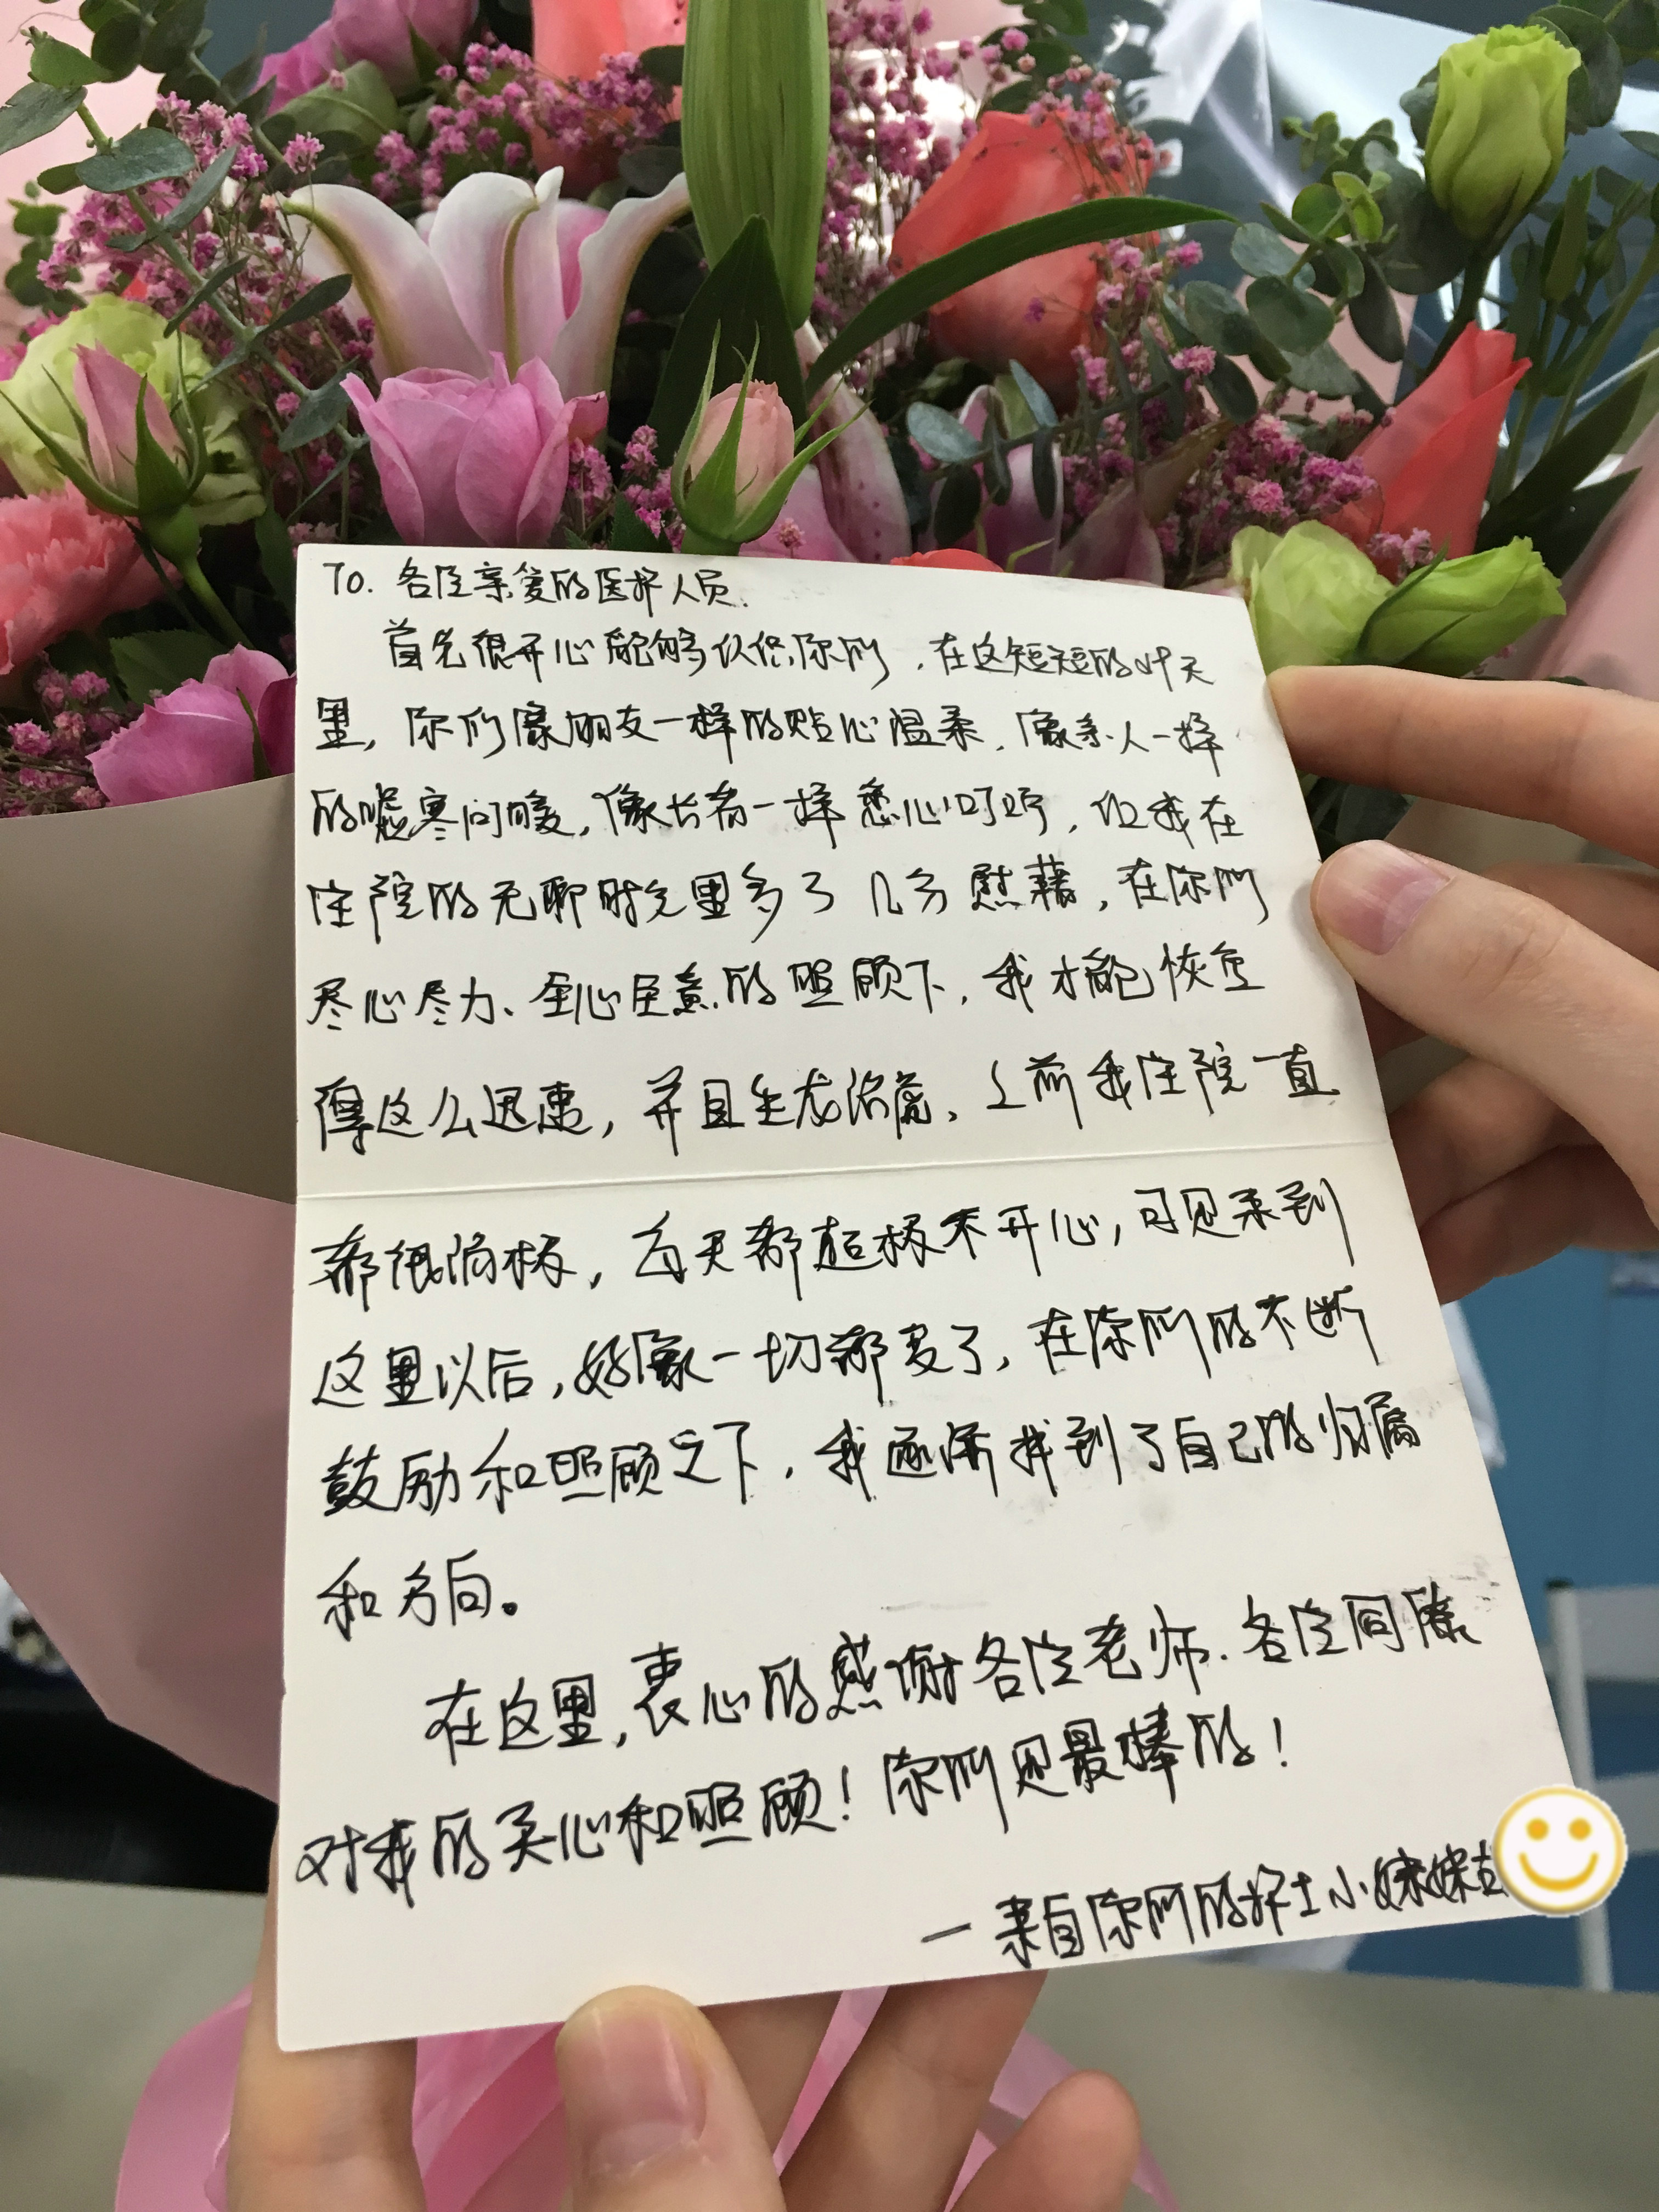 TO. 各位亲爱的医护人员.
首先很开心能够认识你们，在这短短的叶天
里，你们像朋友一样的贴心温柔，像亲人一样
的嘘寒问暖，像长者一样悉心叮咛，让我在
住院的无聊时光里多了几分慰藉，在你们
尽心尽力、全心全意的照顾下，我才能恢复
得这么迅速，并且生龙活虎，之前我住院一直
都很消极，每天都超极不开心，可是来到
这里以后，好像一切都变了，在你们的不断
鼓励和照顾之下，我逐渐找到了自己的归属
和方向。
在这里，衷心的感谢各位老师.各位同僚
对我的关心和照顾！你们是最棒的！
一来自你们的护士小妹妹